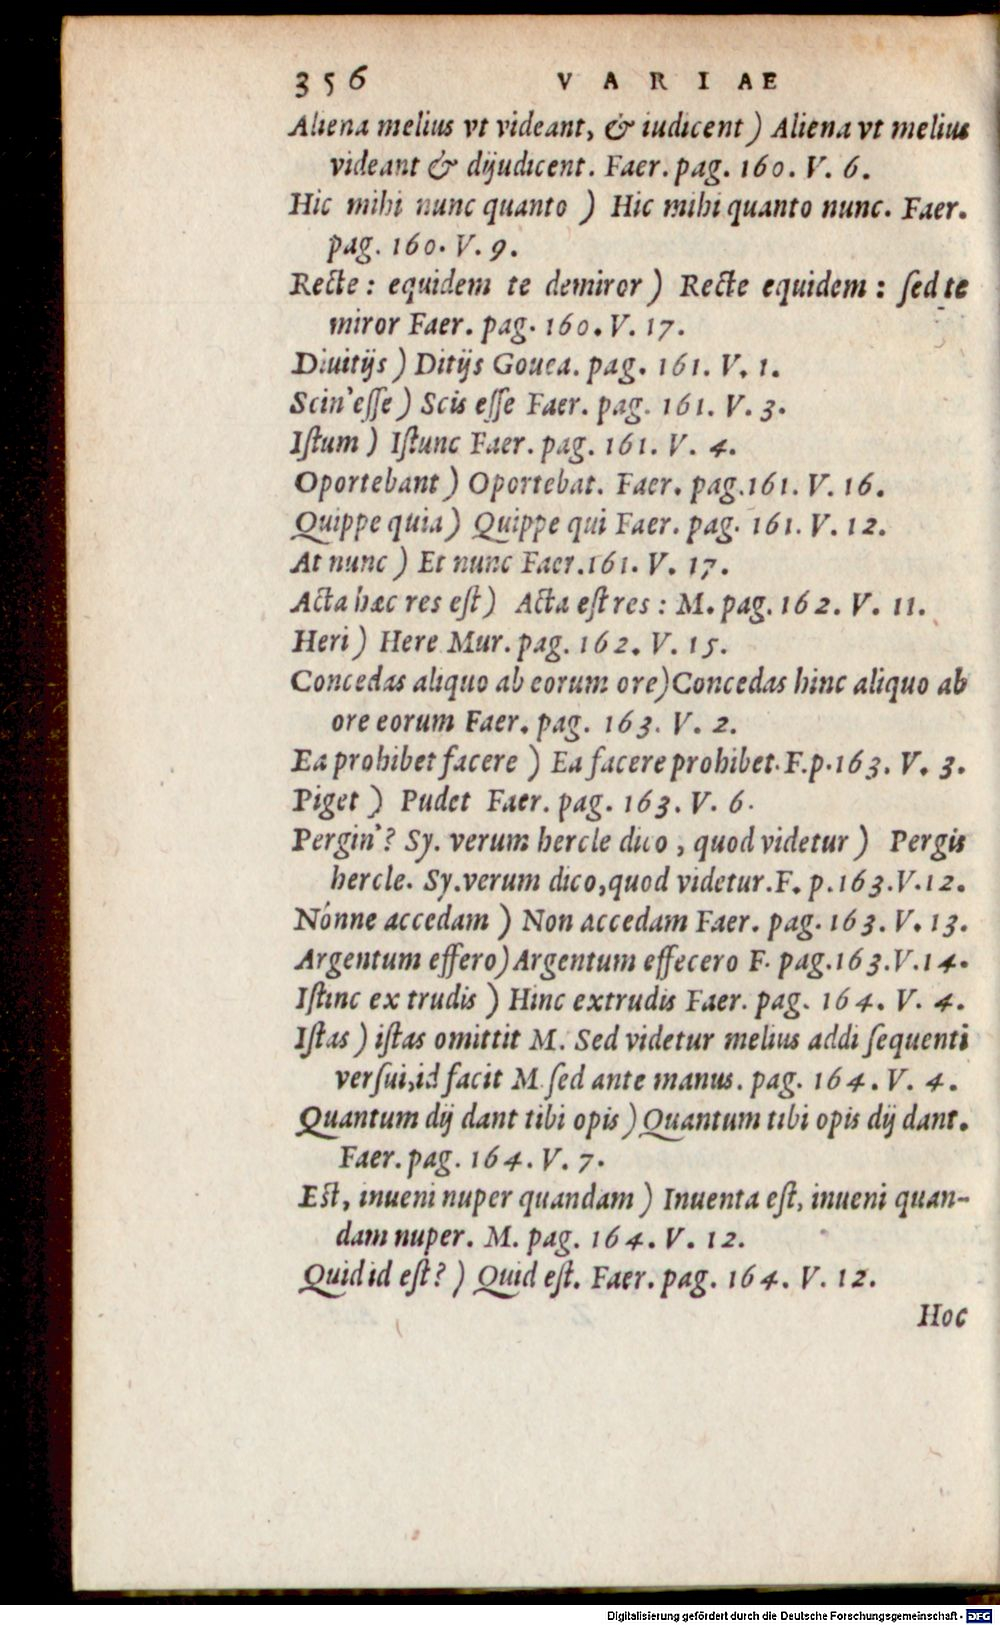 356 VARIAE
Aliena melius vt videant, & iudicent) Aliena vt melius
videant & dijudicent. Faer. pag. 160. V. 6.
Hic mihi nunc quanto ) Hic mihi quanto nunc. Faer.
pag. 160. V. 9.
Recte: equidem te demiror) Recte equidem: ſed te
miror Faer. pag. 160. V. 17.
Diuitijs) Ditijs Gouea. pag. 161. V. 1.
Scin' eſſe) Scis eſſe Faer. pag. 161. V. 3.
Iſtum) Iſtunc Faer. pag. 161. V. 4.
Oportebant) Oportebat. Faer. pag. 161. V. 16.
Quippe quia) Quippe qui Faer. pag. 161. V. 12.
At nunc) Et nunc Faer. 161. V. 17.
Acta hæc res eſt) Acta eſt res: M. pag. 162. V. 11.
Heri) Here Mur. pag. 162. V. 15.
Concedas aliquo ab eorum ore) Concedas hinc aliquo ab
ore eorum Faer. pag. 163. V. 2.
Ea prohibet facere) Ea facere prohibet. F. p. 163. V. 3.
Piget) Pudet Faer. pag. 163. V. 6.
Pergin'? Sy. verum hercle dico, quod videtur) Pergis
hercle. Sy. verum dico, quod videtur. F. p. 163. V. 12.
Nónne accedam) Non accedam Faer. pag. 163. V. 13.
Argentum effero) Argentum effecero F. pag. 163. V. 14.
Iſtinc ex trudis) Hinc extrudis Faer. pag. 164. V. 4.
Iſtas) iſtas omittit M. Sed videtur melius addi ſequenti
verſui, id facit M. ſed ante manus. pag. 164. V. 4.
Quantum dij dant tibi opis) Quantum tibi opis dij dant.
Faer. pag. 164. V. 7.
Eſt, inueni nuper quandam) Inuenta eſt, inueni quan-
dam nuper. M. pag. 164. V. 12.
Quid id eſt?) Quid eſt. Faer. pag. 164. V. 12.
Hoc
Digitalisierung gefördert durch die Deutsche Forschungsgemeinschaft - DFG